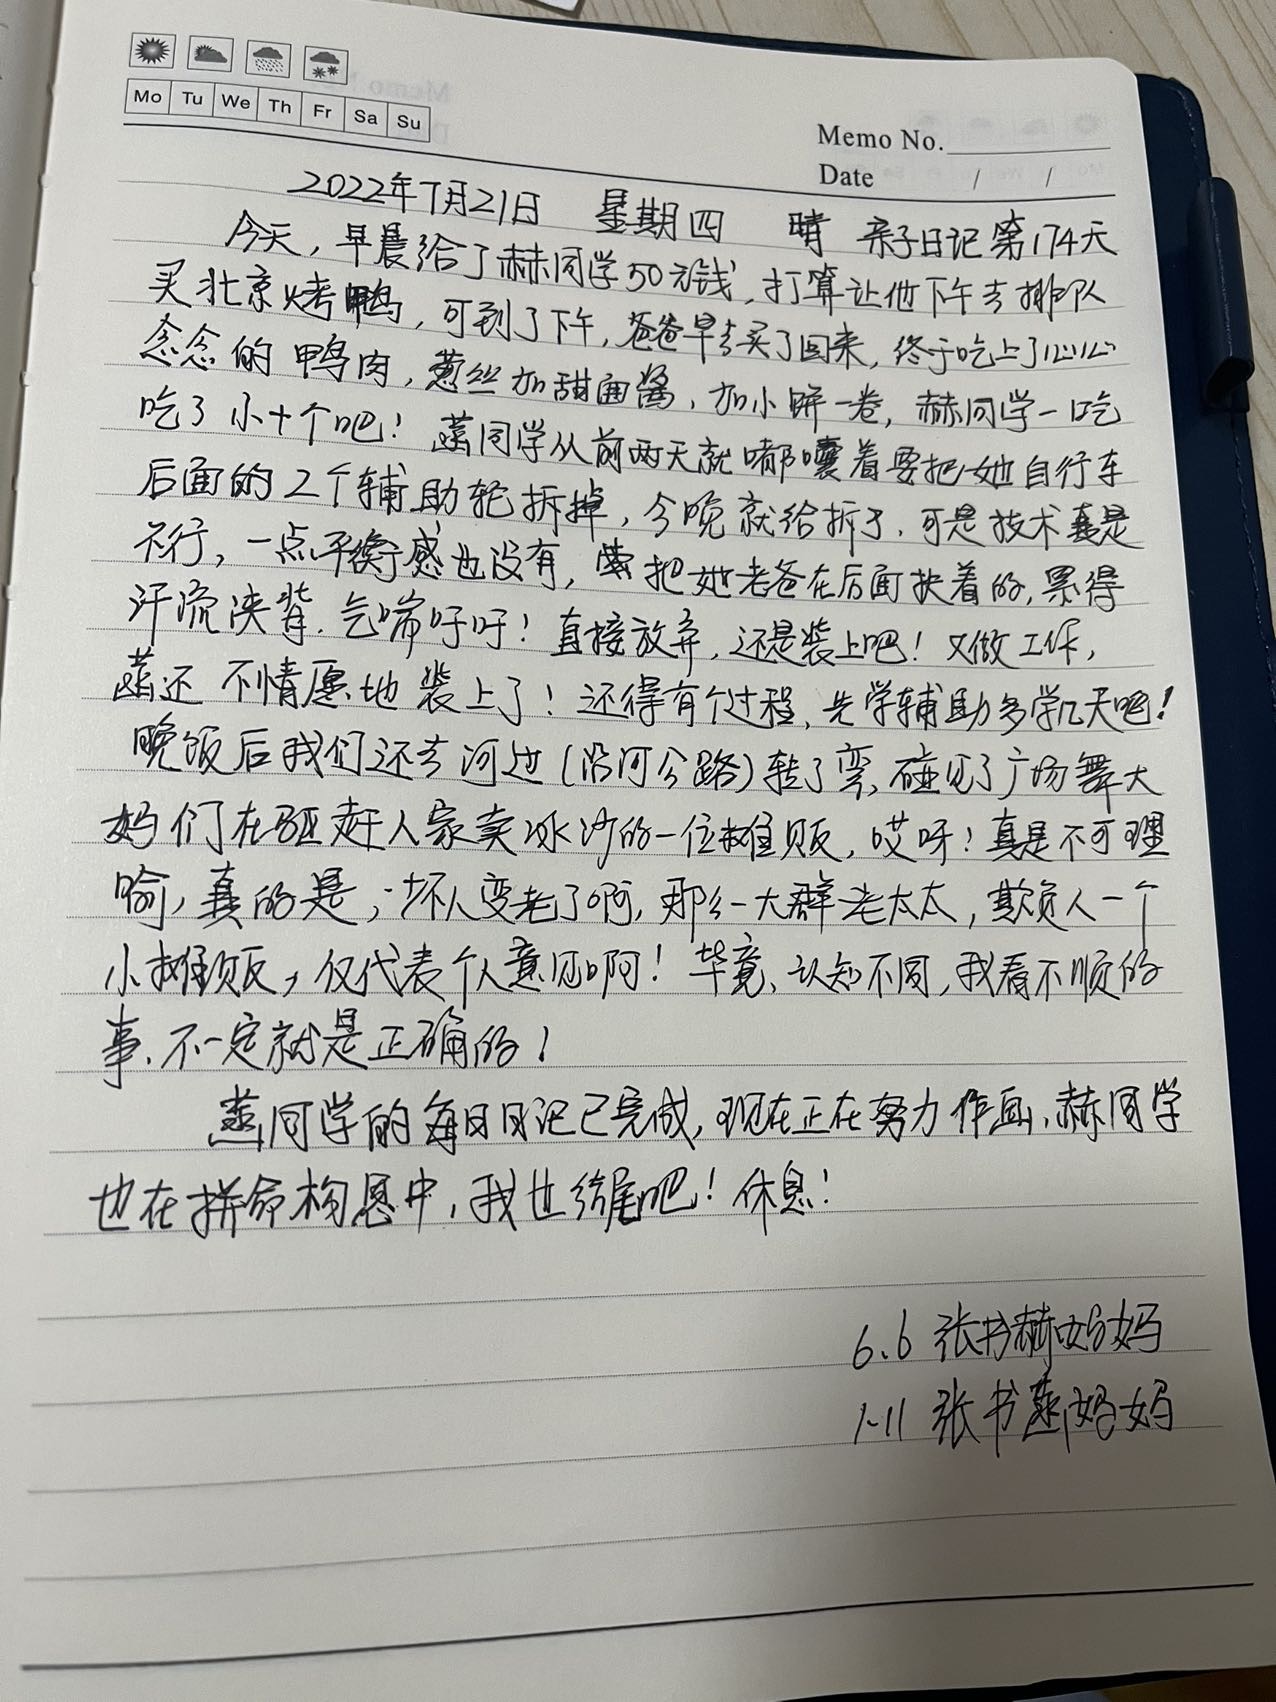 Mo Tu We Th Fr Sa Su
Memo No.
Date / /
2022年7月21日 星期四 晴 亲子日记第174天
今天，早晨给了赫同学50元钱，打算让他下午去排队
买北京烤鸭，可到了下午，爸爸早去买了回来，终于吃上了心心
念念的鸭肉，葱丝加甜面酱，加小饼一卷，赫同学一口吃
吃了小十个吧！燕同学从前两天就嘟囔着要把她自行车
后面的2个辅助轮拆掉，今晚就给拆了，可是技术真是
不行，一点平衡感也没有，把她老爸在后面扶着的，累得
汗流浃背，气喘吁吁！直接放弃，还是装上吧！又做工作，
燕还不情愿地装上了！还得有个过程，先学辅助多学几天吧！
晚饭后我们还去河边（沿河公路）转了弯，碰见了广场舞大
妈们在驱赶人家卖冰沙的一位摊贩，哎呀！真是不可理
喻，真的是，坏人变老了啊，那么一大群老太太，欺负人一个
小摊贩，仅代表个人意见啊！毕竟，认知不同，我看不顺的
事，不一定就是正确的！
燕同学的每日日记已完成，现在正在努力作画，赫同学
也在拼命构思中，我也结尾吧！休息！
6.6 张书赫妈妈
1-11 张书燕妈妈